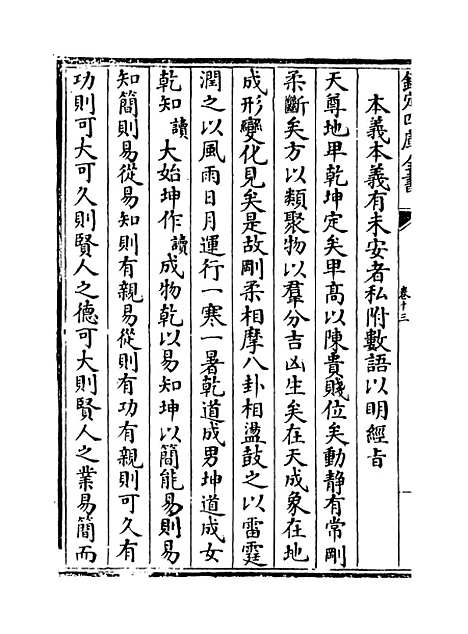 欽定四庫全書
卷十三
本義本義有未安者私附數語以明經旨
天尊地卑乾坤定矣卑高以陳貴賤位矣動靜有常剛
柔斷矣方以類聚物以羣分吉凶生矣在天成象在地
成形變化見矣是故剛柔相摩八卦相盪鼓之以雷霆
潤之以風雨日月運行一寒一暑乾道成男坤道成女
乾知讀大始坤作讀成物乾以易知坤以簡能易則易
知簡則易從易知則有親易從則有功有親則可久有
功則可大可久則賢人之德可大則賢人之業易簡而